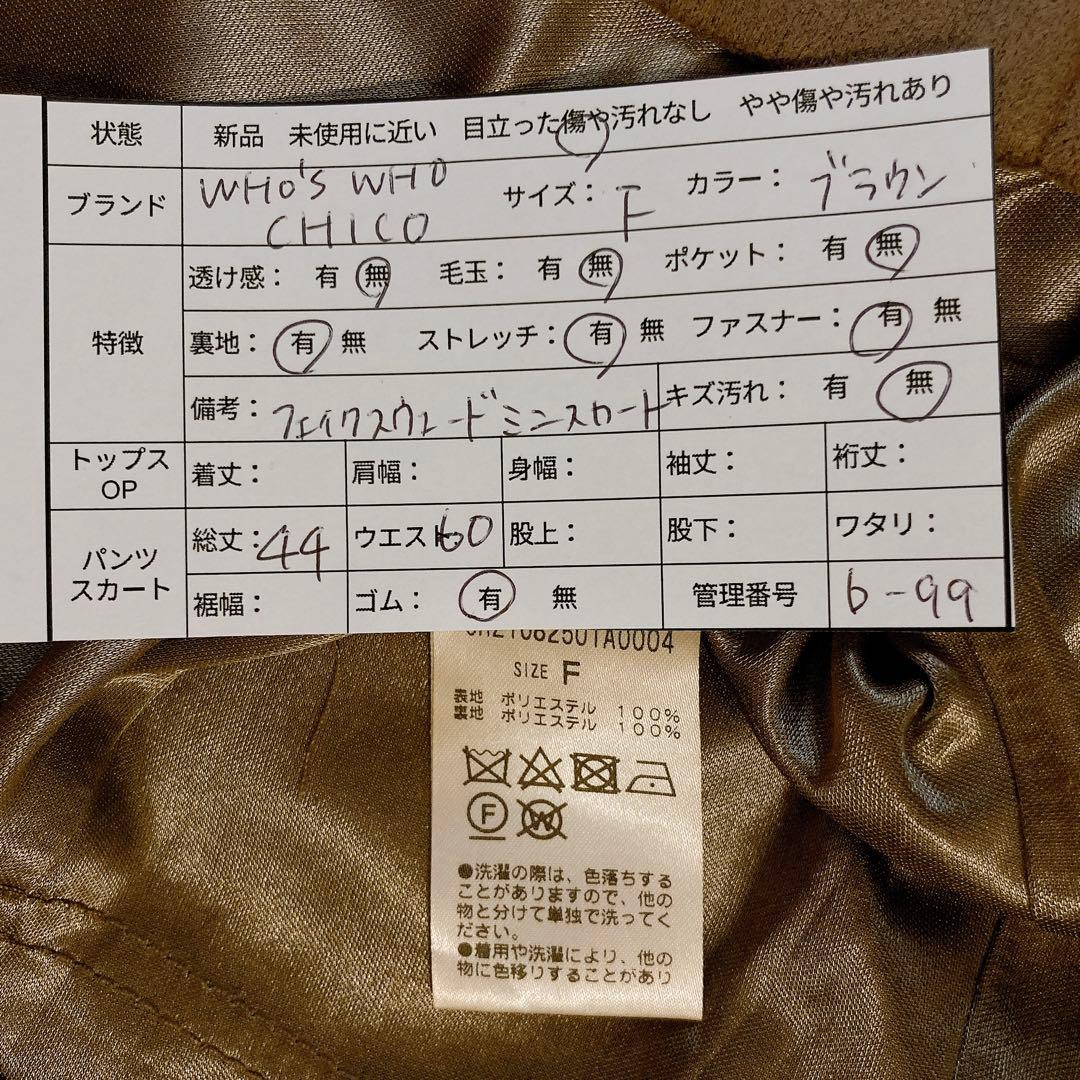 状態 新品 未使用に近い 目立った傷や汚れなし やや傷や汚れあり
ブランド WHO'S WHO CHICO サイズ: F カラー: ブラウン
特徴
透け感: 有 無 毛玉: 有 無 ポケット: 有 無
裏地: 有 無 ストレッチ: 有 無 ファスナー: 有 無
備考: フェイクスウェードミニスカート キズ汚れ: 有 無
トップス OP 着丈: 肩幅: 身幅: 袖丈: 裄丈:
パンツ スカート
総丈: 44 ウエスト: 60 股上: 股下: ワタリ:
裾幅: ゴム: 有 無 管理番号 6-99
SIZE F
表地 ポリエステル 100%
裏地 ポリエステル 100%
F W
●洗濯の際は、色落ちする
ことがありますので、他の
物と分けて単独で洗ってく
ださい。
●着用や洗濯により、他の
物に色移りすることがあり